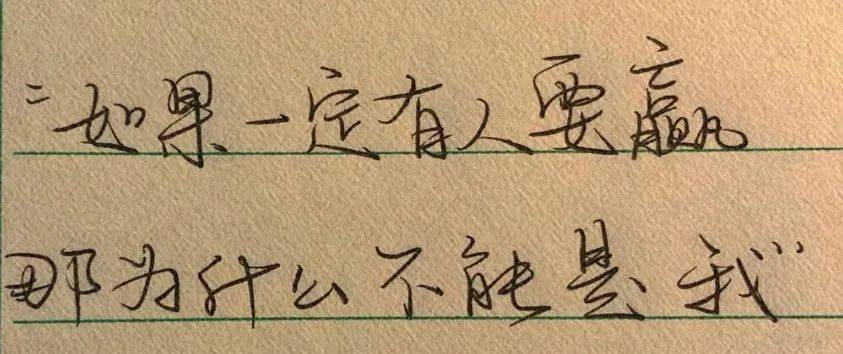 “如果一定有人要赢
那为什么不能是我”